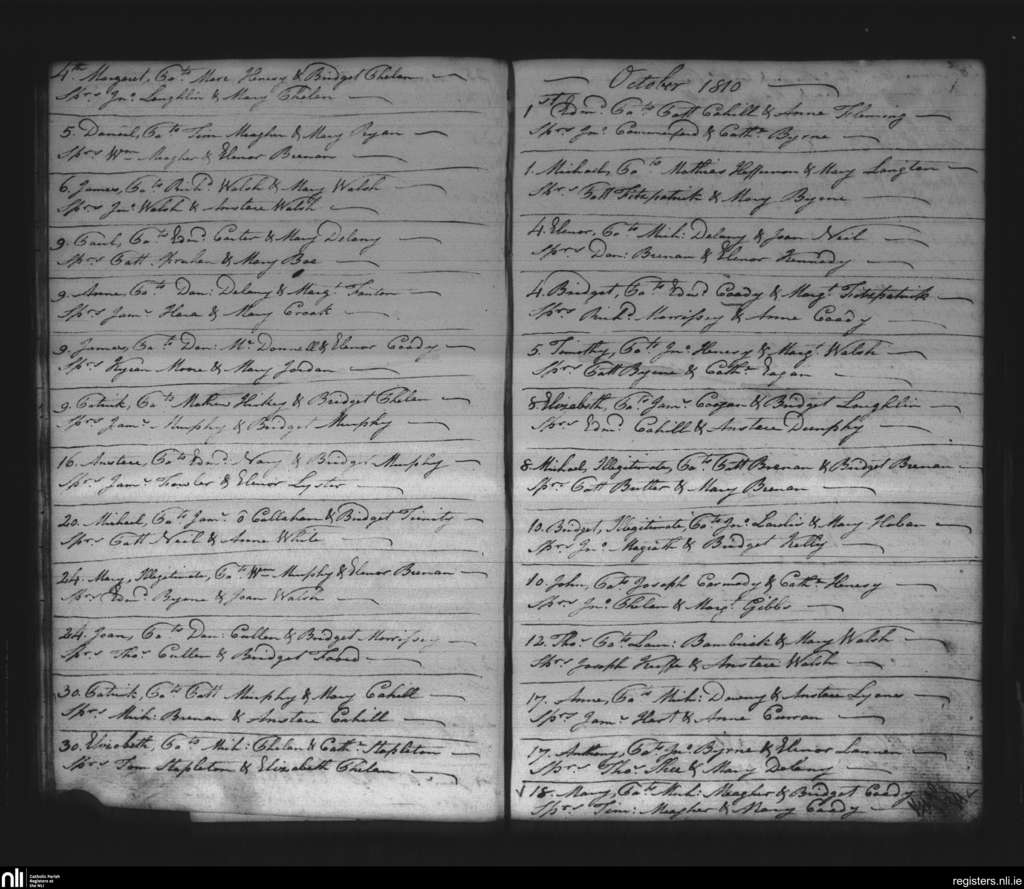 4th Margaret, Pats Marc Henesy & Bridget Phelan
Sprs Jno Loughlin & Mary Phelan
5. Daniel, Pats Tim Meagher & Mary Ryan
Sprs Wm Meagher & Elenor Brenan
6. James, Pats Richd Walsh & Mary Walsh
Sprs Jno Walsh & Anstace Walsh
9. Paul, Pats Edmd Carter & Mary Delany
Sprs Patt & Mary Boe
9. Anne, Pats Dan: Delany & Margt
Sprs Jams Hara & Mary Croak
9. James, Pats Dan: Mc Donnell & Elenor Coady
Sprs Kyran Moore & Mary Jordan
9. Patrick, Pats Mathew Huskey & Bridget Phelan
Sprs Jams Murphy & Bridget Murphy
16. Anstace, Pats Edmd Nary & Bridget Murphy
Sprs Jams Fowler & Elenor Lyster
20. Michael, Pats Jams o Callahan & Bridget Trinity
Sprs Patt Neil & Anne White
24. Mary, Illegitimate, Pats Wm Murphy & Elenor Brenan
Sprs Edmd Byrne & Joan Walsh
24. Joan, Pats Dan: Cullen & Bridget Morrissey
Sprs Thos Cullen & Bridget
30. Patrick, Pats Patt Murphy & Mary Cahill
Sprs Mich: Brenan & Anstace Cahill
30. Elizabeth, Pats Mich: Phelan & Cathe Stapleton
Sprs Tom Stapleton & Elizabeth Phelan
October 1810
1st Edmd Pats Patt Cahill & Anne Fleming
Sprs Jno Commerford & Cathe Byrne
1. Michael, Pats Mathias Heffernan & Mary Langton
Sprs Patt Fitzpatrick & Mary Byrne
4. Elenor, Pats Mich: Delany & Joan Neil
Sprs Dan: Brenan & Elenor Kennedy
4. Bridget, Pats Edmd Coady & Margt Fitzpatrick
Sprs Richd Morrissey & Anne Coady
5. Timothy, Pats Jno Henesy & Margt Walsh
Sprs Patt Byrne & Cathe Eagan
8. Elizabeth, Pats Jams Coogan & Bridget Loughlin
Sprs Edmd Cahill & Anstace Dunphy
8. Michael, Illegitimate, Pats Patt Brenan & Bridget Brenan
Sprs Patt Butler & Mary Brenan
10. Bridget, Illegitimate, Pats Jno & Mary Hoban
Sprs Jno Magrath & Bridget Kelly
10. John, Pats Joseph Carmody & Cathe Henesy
Sprs Jno Phelan & Margt Gibbs
12. Thos Pats Laur: Bambrick & Mary Walsh
Sprs Joseph Keeffe & Anstace Walsh
17. Anne, Pats Mich: Dewny & Anstace Lyons
Sprs Jams Hart & Anne Curran
17. Anthony, Pats Jno Byrne & Elenor Lannen
Sprs Thos Shee & Mary Delany
18. Mary, Pats Mich: Meagher & Bridget Coady
Sprs Tim: Meagher & Mary Coady
nli
Catholic Parish
Registers at
the NLI
registers.nli.ie